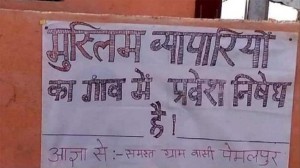 मुस्लिम व्यापारियों
का गाव में प्रवेश निषेध
है।
आज्ञा से :- समस्त ग्राम वासी पेमलपुर